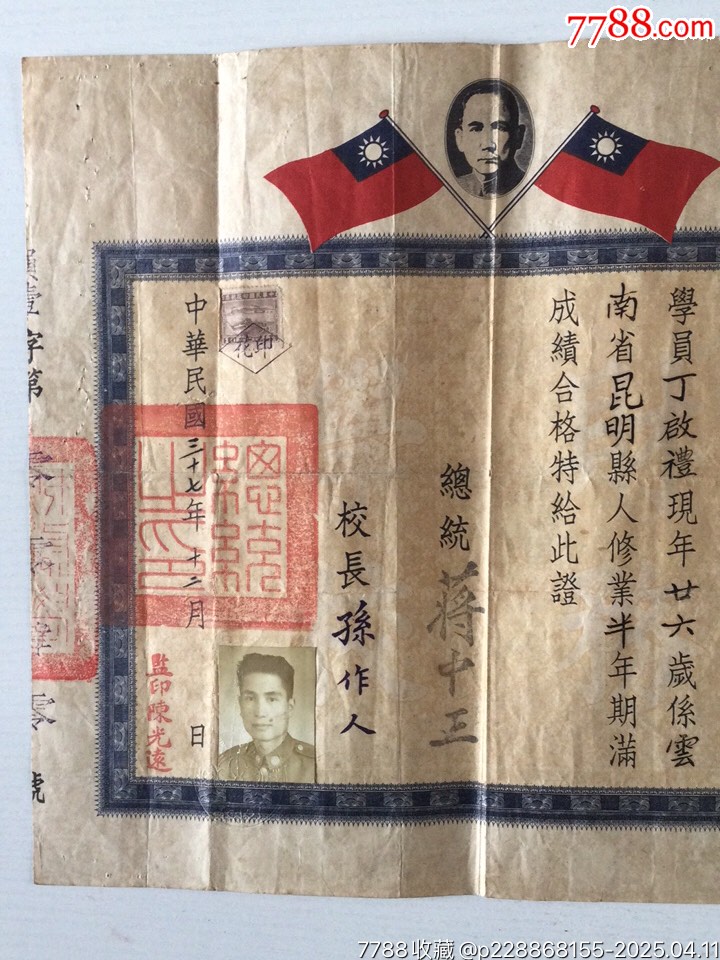 7788.com
學員丁啟禮現年廿六歲係雲
南省昆明縣人修業半年期滿
成績合格特給此證
總統 蔣中正
校長 孫作人
印花
中華民國三十七年十二月 日
監印陳光遠
員壹字第 零 零 號
7788收藏 @p228868155-2025.04.11